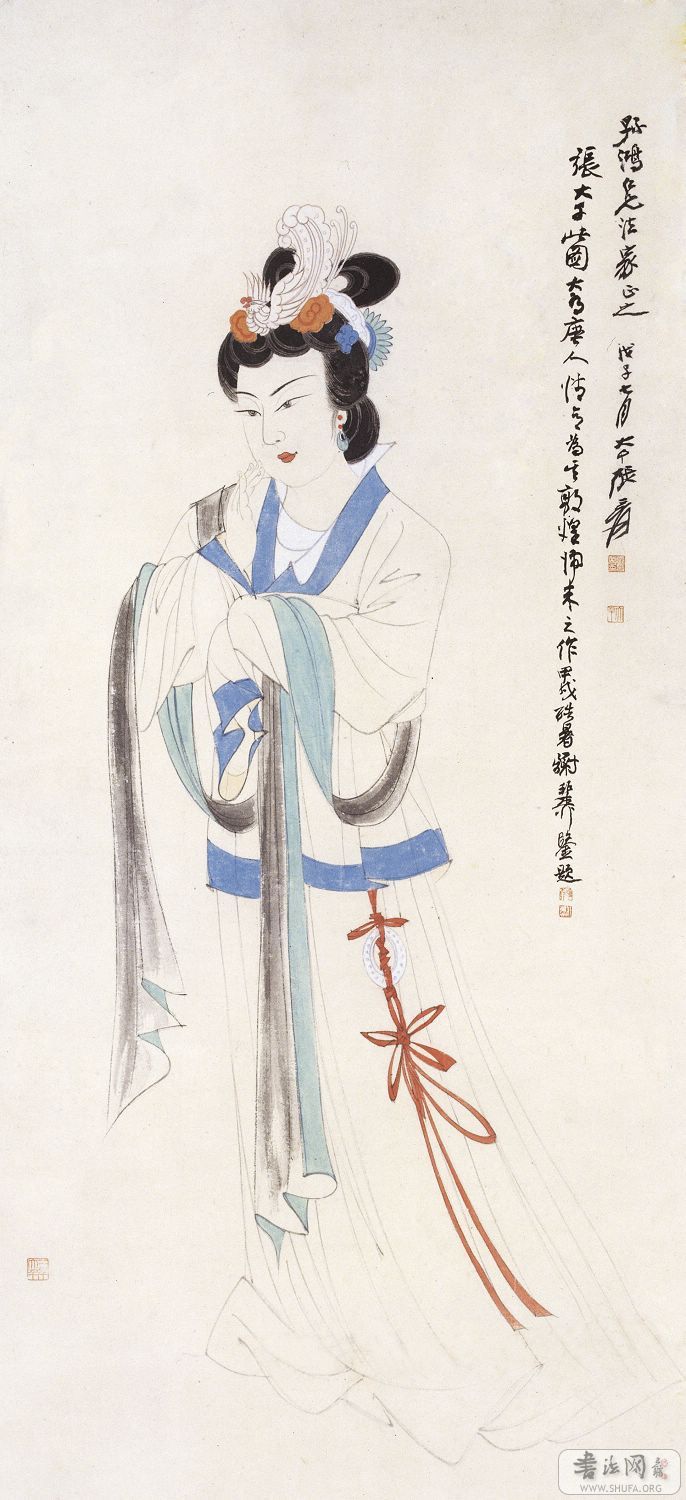 鴻先生法家正之 戊子七月 大千張爰
張大千此圖大有唐人情意為其敦煌歸來之作甲戌酷暑謝稚柳鑒題
書法网
WWW.SHUFA.ORG